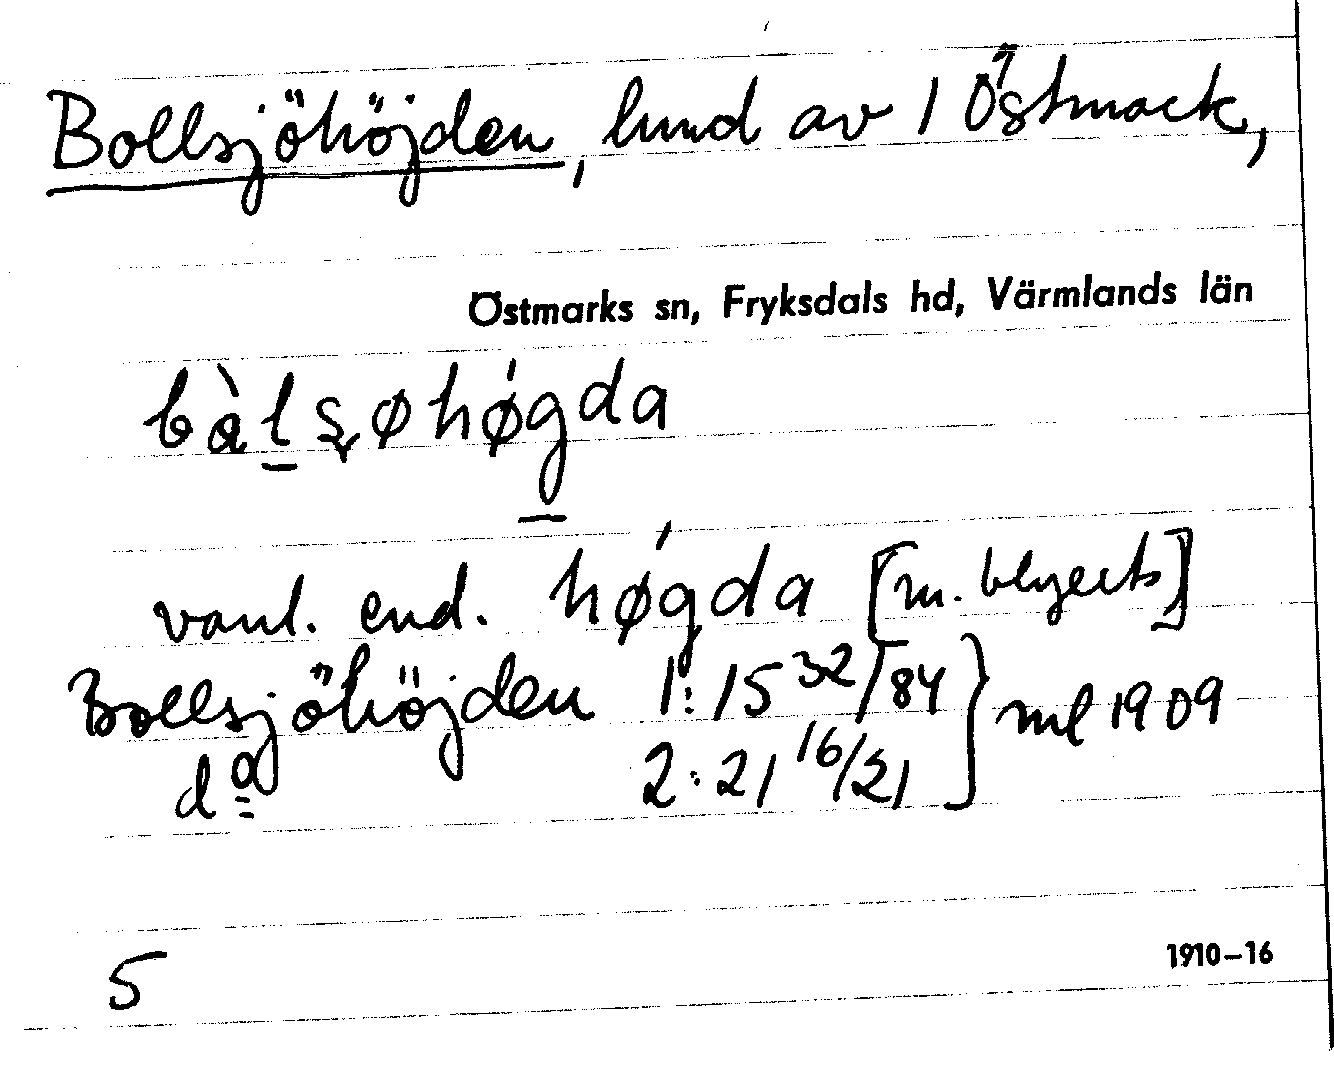 Bollsjöhöjden, hmd av 1 Östmark,
Östmarks sn, Fryksdals hd, Värmlands län
bàlsøhǿgda
vanl. end. hǿgda [m. blyerts]
Bollsjöhöjden 1:15 32/84 } ml 1909
dº 2:21 16/21
5
1910–16